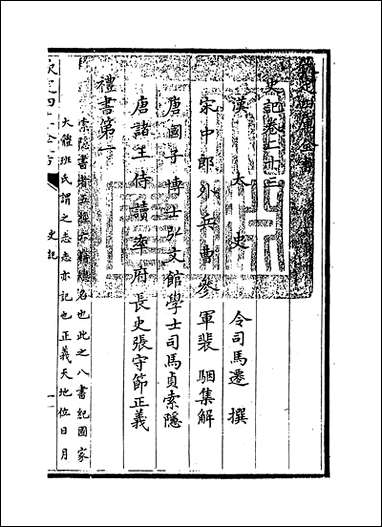 欽定四庫全書
史記卷二十三
漢太史令司馬遷撰
宋中郎外兵曹參軍裴駰集解
唐國子博士弘文館學士司馬貞索隱
唐諸王侍讀率府長史張守節正義
禮書第一
索隱書者五經六籍總名也此之八書紀國家
大體班氏謂之志志記也正義天地位日月
欽定四庫全書
史記
一